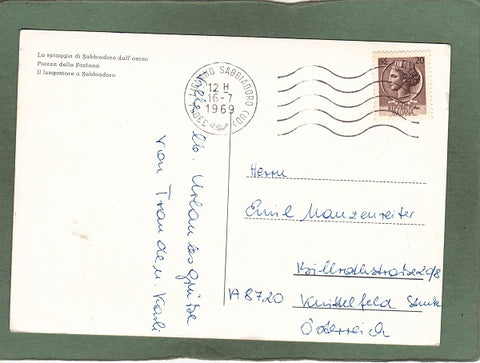 La spiaggia di Sabbiadoro dall'aereo
Piazza della Fontana
Il lungomare a Sabbiadoro
LIGNANO SABBIADORO (UD)
12 H
16-7
1969
20
Viele lb. Urlaubsgrüße
von Traude u. Karli
Herrn
Emil Manzenreiter
Billrothstraße 20/8
A 8720 Knittelfeld Stmk
Österreich